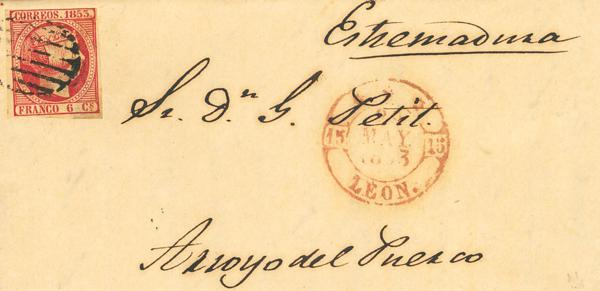 CORREOS. 1853.
FRANCO 6 Cs
Estremadura
Sr. Dn G. Petit.
15 MAY. 15
1853
LEON.
Arroyo del Puerco